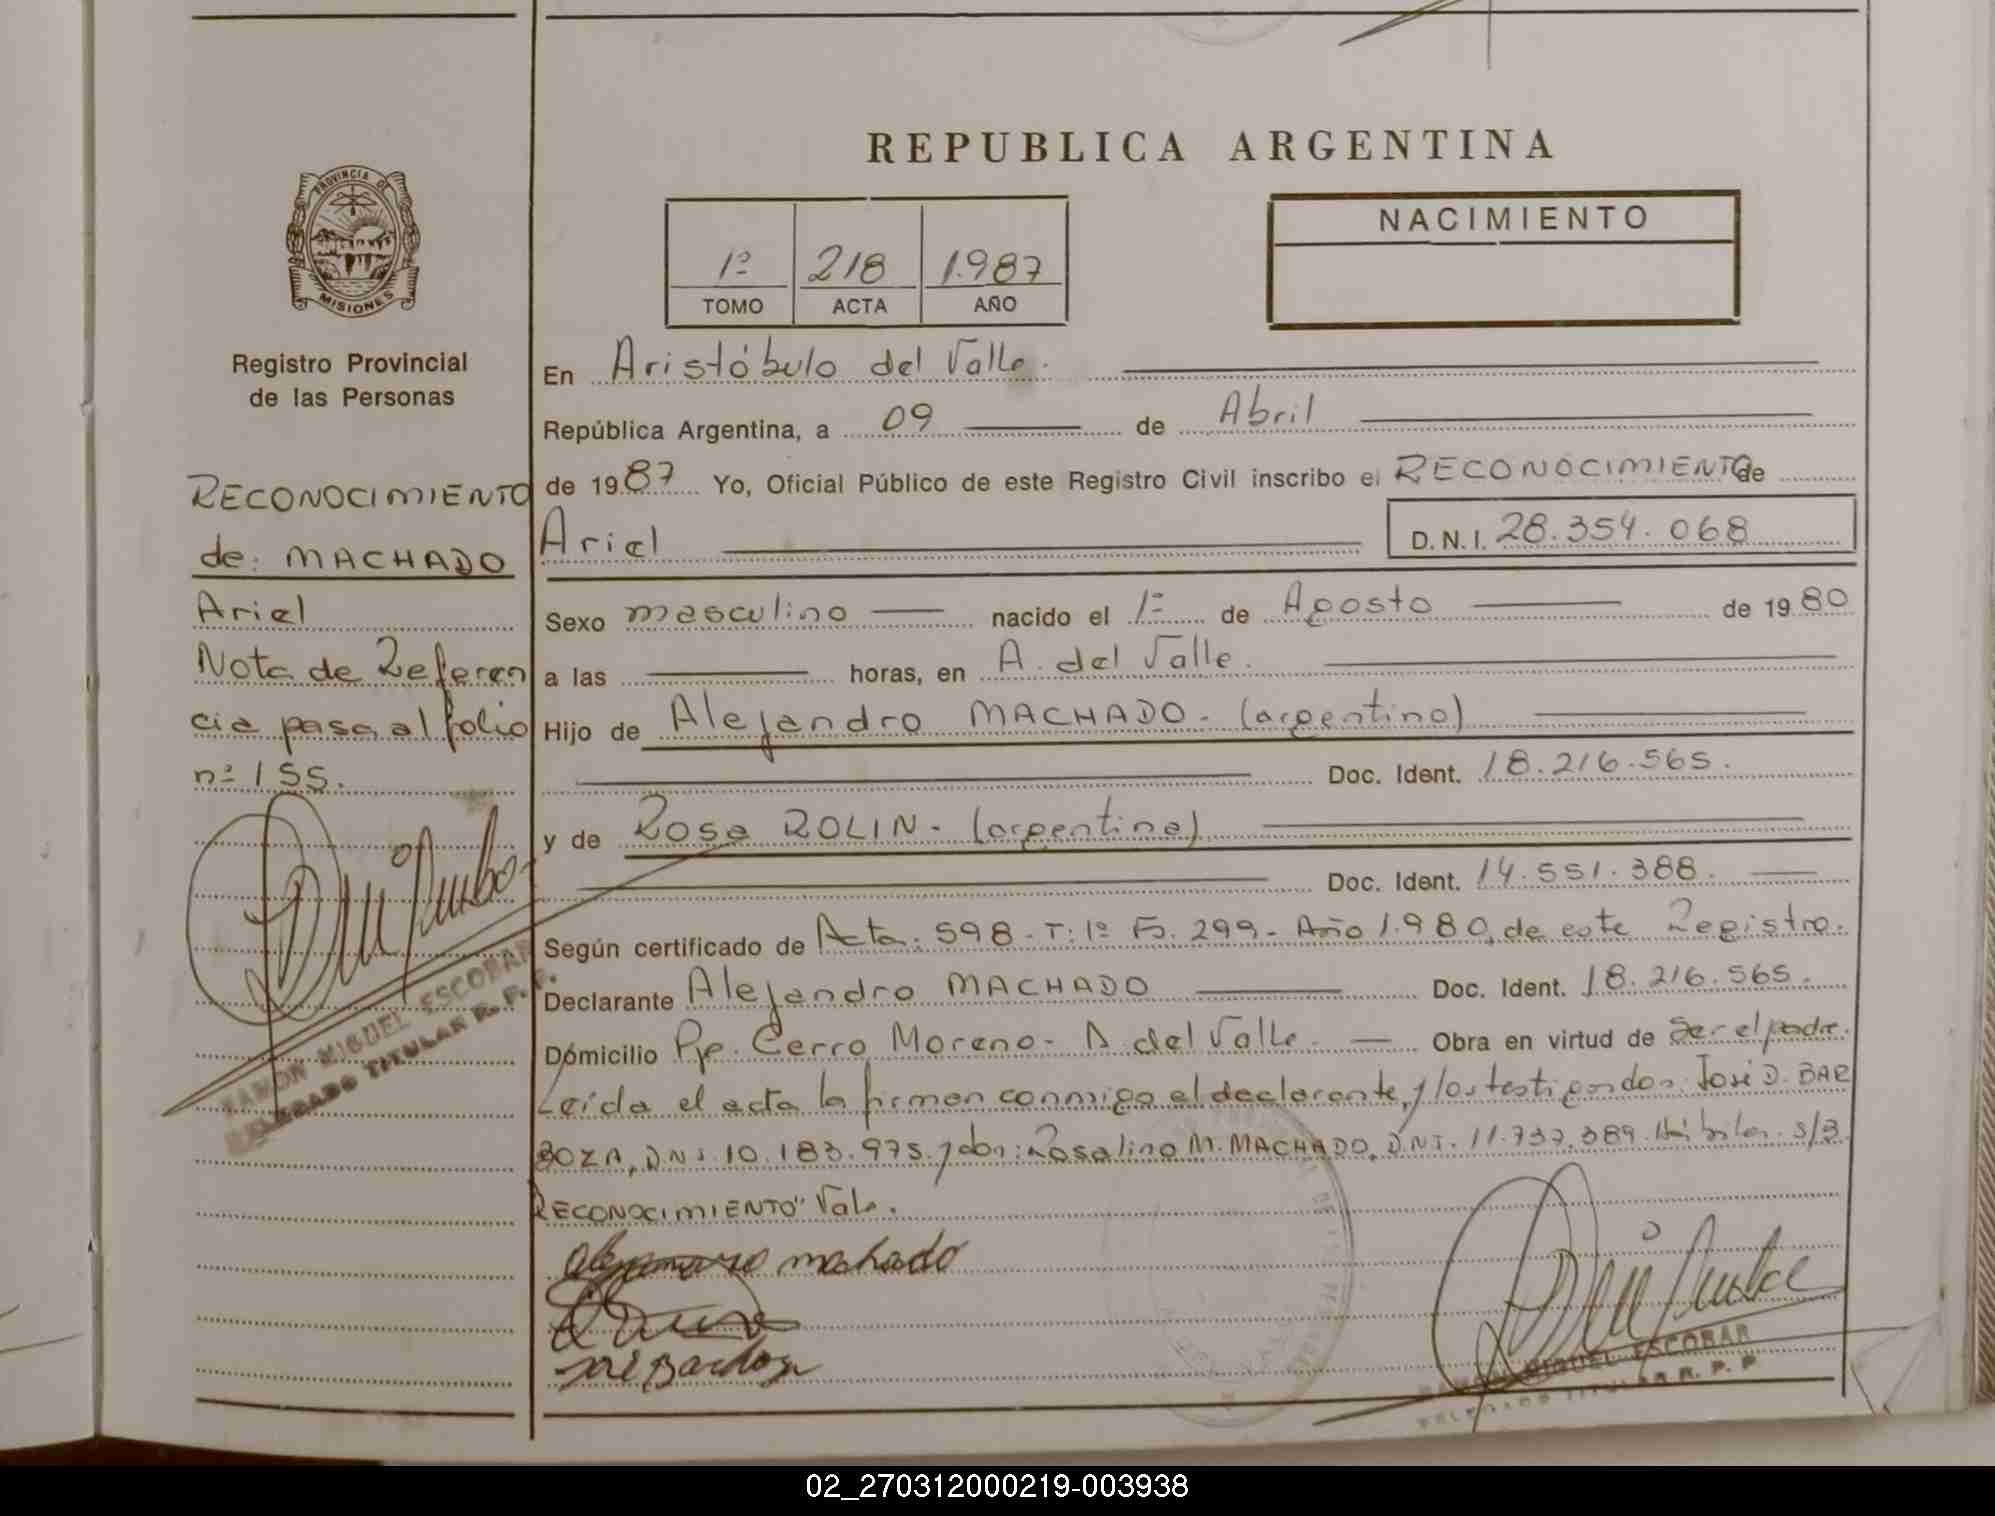 REPUBLICA ARGENTINA
PROVINCIA DE
MISIONES
Registro Provincial
de las Personas
1º 218 1.987
TOMO ACTA AÑO
NACIMIENTO
RECONOCIMIENTO
de: MACHADO
Ariel
Nota de Referen
cia pasa al folio
nº 155.
RAMON MIGUEL ESCOBAR
DELEGADO TITULAR R. P. P.
En Aristóbulo del Valle.
República Argentina, a 09 de Abril
de 1987 Yo, Oficial Público de este Registro Civil inscribo el RECONOCIMIENTO de
Ariel D.N.I. 28.354.068
Sexo masculino nacido el 1º de Agosto de 1980
a las horas, en A. del Valle.
Hijo de Alejandro MACHADO - (argentino)
Doc. Ident. 18.216.565.
y de Rosa ROLIN - (argentina)
Doc. Ident. 14.551.388.
Según certificado de Acta. 598 - T: 1º F. 299 - Año 1.980, de este Registro.
Declarante Alejandro MACHADO Doc. Ident. 18.216.565.
Domicilio Pje. Cerro Moreno - A. del Valle. Obra en virtud de Ser el padre.
Leída el acta la firman conmigo el declarante, y los testigos don: José D. BAR
BOZA, DNI. 10.183.975. y don: Rosalino M. MACHADO, D.N.I. 11.737.389. Hábiles. s/B.
RECONOCIMIENTO" Vale.
Alejandro machado
José Barboza
RAMON MIGUEL ESCOBAR
DELEGADO TITULAR R. P. P.
02_270312000219-003938